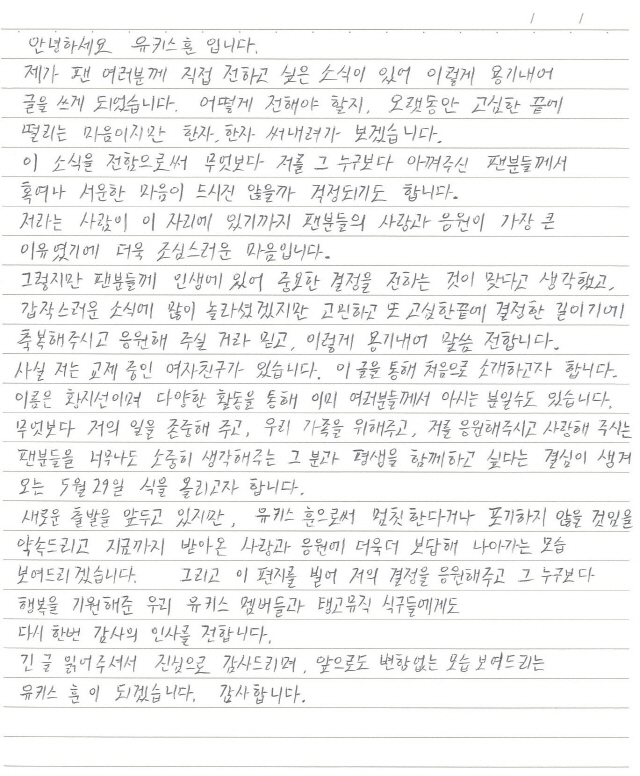 / /
안녕하세요 유키스훈 입니다.
제가 팬 여러분께 직접 전하고 싶은 소식이 있어 이렇게 용기내어
글을 쓰게 되었습니다. 어떻게 전해야 할지, 오랫동안 고심한 끝에
떨리는 마음이지만 한자,한자 써내려가 보겠습니다.
이 소식을 전함으로써 무엇보다 저를 그 누구보다 아껴주신 팬분들께서
혹여나 서운한 마음이 드시진 않을까 걱정되기도 합니다.
저라는 사람이 이 자리에 있기까지 팬분들의 사랑과 응원이 가장 큰
이유였기에 더욱 조심스러운 마음입니다.
그렇지만 팬분들께 인생에 있어 중요한 결정을 전하는 것이 맞다고 생각했고,
갑작스러운 소식에 많이 놀라셨겠지만 고민하고 또 고심한끝에 결정한 길이기에
축복해주시고 응원해 주실 거라 믿고, 이렇게 용기내어 말씀 전합니다.
사실 저는 교제 중인 여자친구가 있습니다. 이 글을 통해 처음으로 소개하고자 합니다.
이름은 황지선이며 다양한 활동을 통해 이미 여러분들께서 아시는 분일수도 있습니다.
무엇보다 저의 일을 존중해 주고, 우리 가족을 위해주고, 저를 응원해주시고 사랑해 주시는
팬분들을 너무나도 소중히 생각해주는 그 분과 평생을 함께하고 싶다는 결심이 생겨
오는 5월 29일 식을 올리고자 합니다.
새로운 출발을 앞두고 있지만, 유키스 훈으로써 멈칫한다거나 포기하지 않을 것임을
약속드리고 지금까지 받아온 사랑과 응원에 더욱더 보답해 나아가는 모습
보여드리겠습니다. 그리고 이 편지를 빌어 저의 결정을 응원해주고 그 누구보다
행복을 기원해준 우리 유키스 멤버들과 탱고뮤직 식구들에게도
다시 한번 감사의 인사를 전합니다.
긴 글 읽어주셔서 진심으로 감사드리며, 앞으로도 변함없는 모습 보여드리는
유키스 훈이 되겠습니다. 감사합니다.